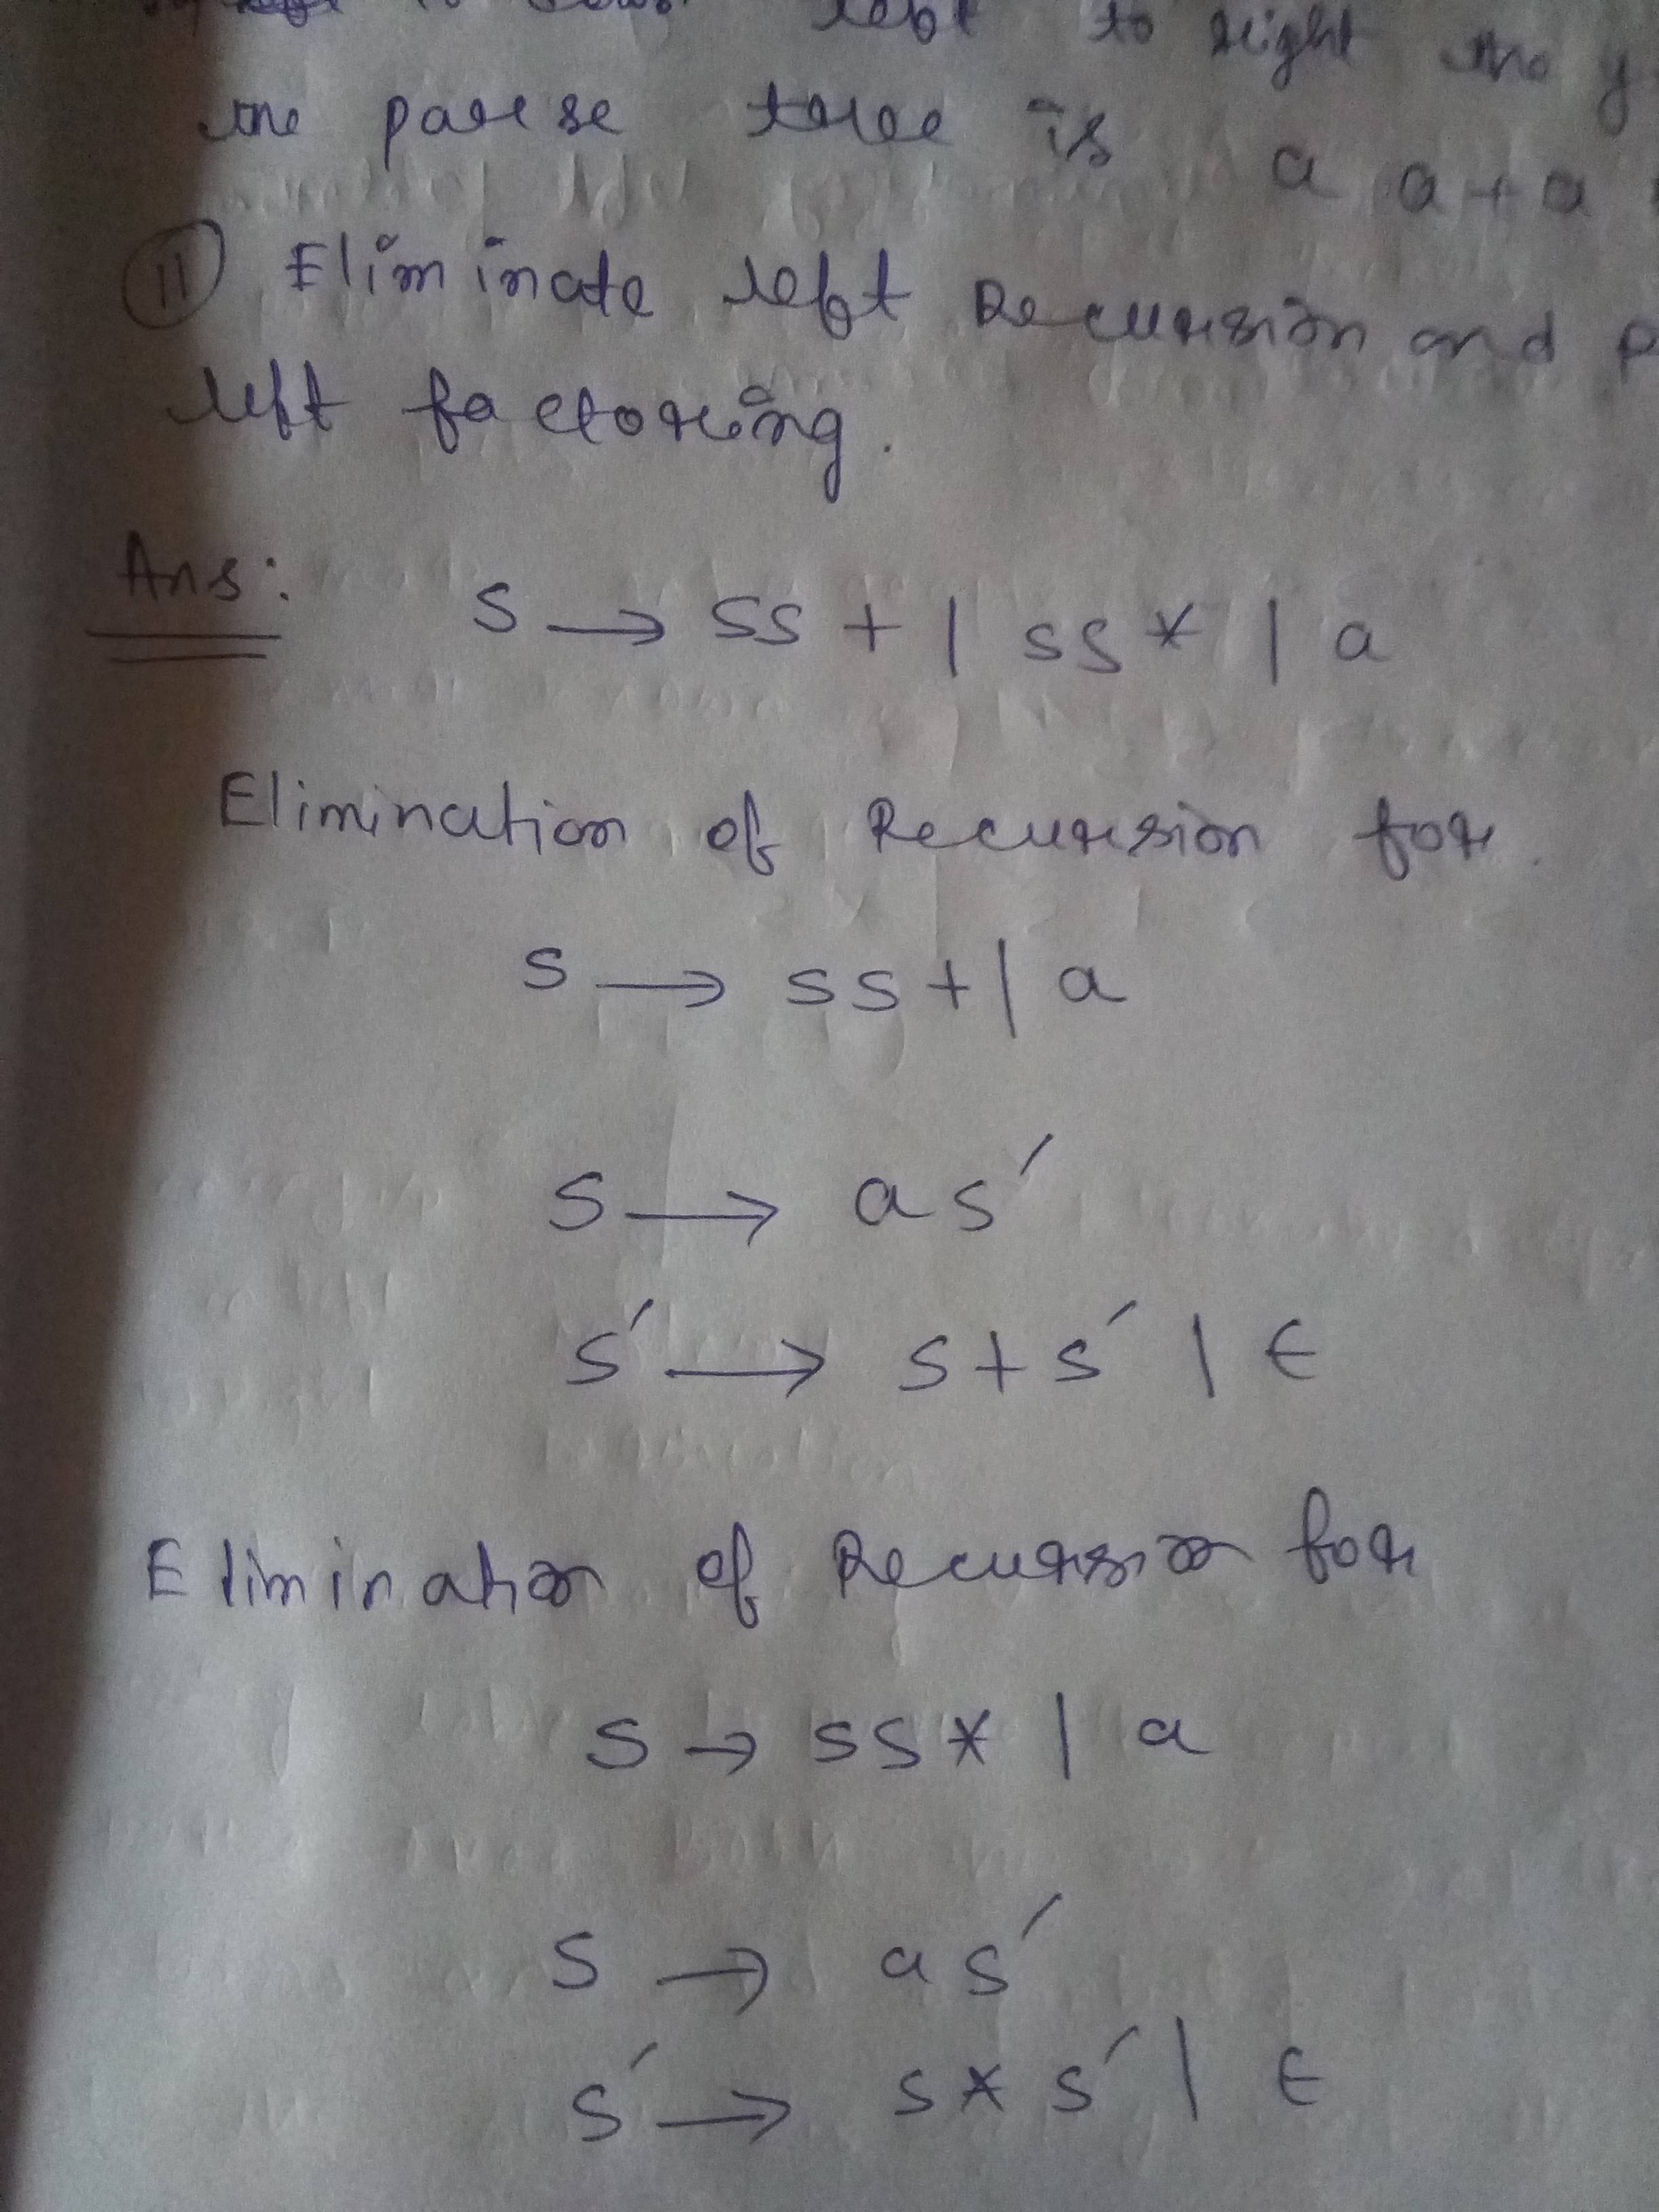 left to right the y
the parse tree is a a + a
11 Eliminate left Recursion and p
left factoring.
Ans: S → SS + | SS * | a
Elimination of Recursion for
S → SS + | a
S → a S'
S' → S + S' | ε
Elimination of Recursion for
S → SS * | a
S → a S'
S' → S * S' | ε